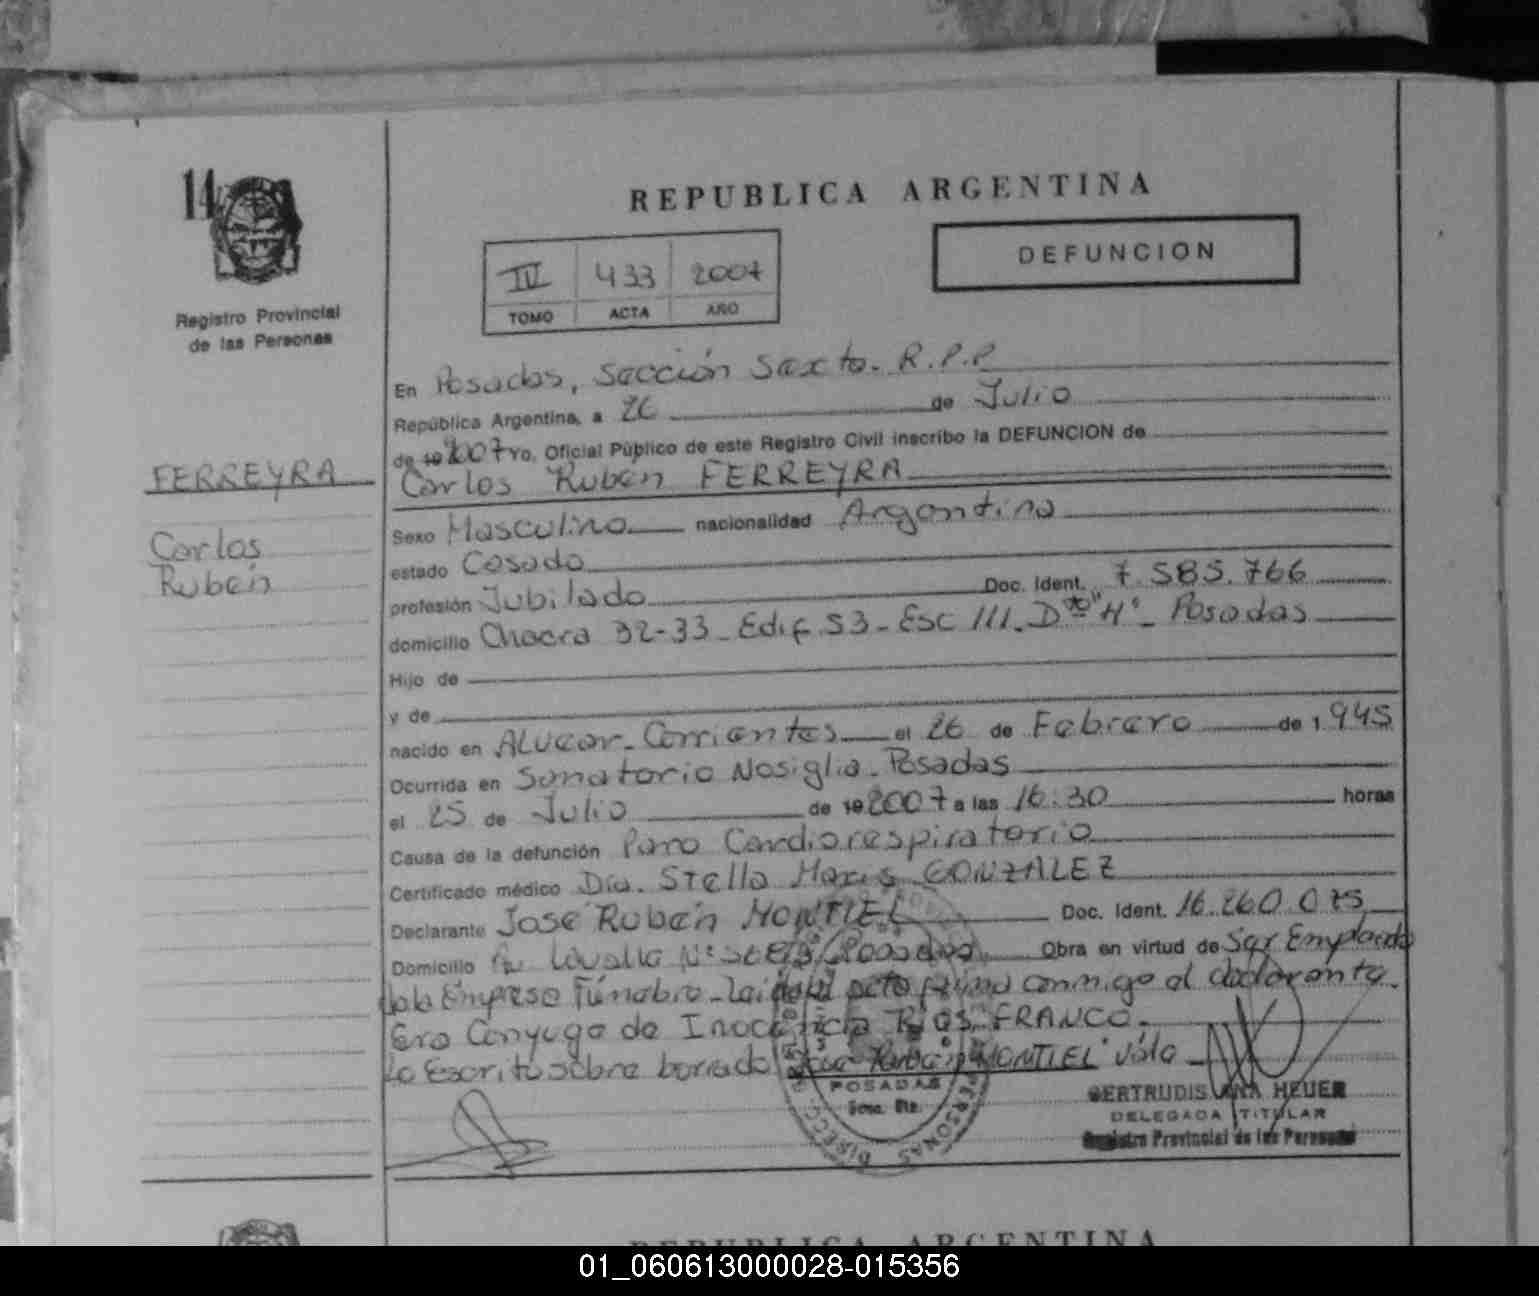 14
Registro Provincial
de las Personas
REPUBLICA ARGENTINA
DEFUNCION
IV 433 2007
TOMO ACTA AÑO
FERREYRA
Carlos
Rubén
En Posadas, Sección Sexta. R.P.P
República Argentina, a 26 de Julio
de 19 2007 Yo, Oficial Público de este Registro Civil inscribo la DEFUNCION de
Carlos Rubén FERREYRA
Sexo Masculino nacionalidad Argentina
estado Casado
profesión Jubilado Doc. Ident. 7.585.766
domicilio Chacra 32-33 - Edif. S3 - Esc III - Dto "H" - Posadas
Hijo de
y de
nacido en Alvear - Corrientes el 26 de Febrero de 1.945
Ocurrida en Sanatorio Nosiglia - Posadas
el 25 de Julio de 19 2007 a las 16:30 horas
Causa de la defunción Paro Cardiorespiratorio
Certificado médico Dra. Stella Maris GONZALEZ
Declarante José Rubén MONTIEL Doc. Ident. 16.260.075
Domicilio Av Lavalle Nº Posadas Obra en virtud de Ser Empleado
de la Empresa Fúnebre - Leida el acta firma conmigo el declarante.
Era Conyuge de Inocencia RIOS FRANCO.
Lo Escrito sobre borrado Rubén MONTIEL" Vale
POSADAS
GERTRUDIS ANA HEUER
DELEGADA TITULAR
Registro Provincial de las Personas
REPUBLICA ARGENTINA
01_060613000028-015356